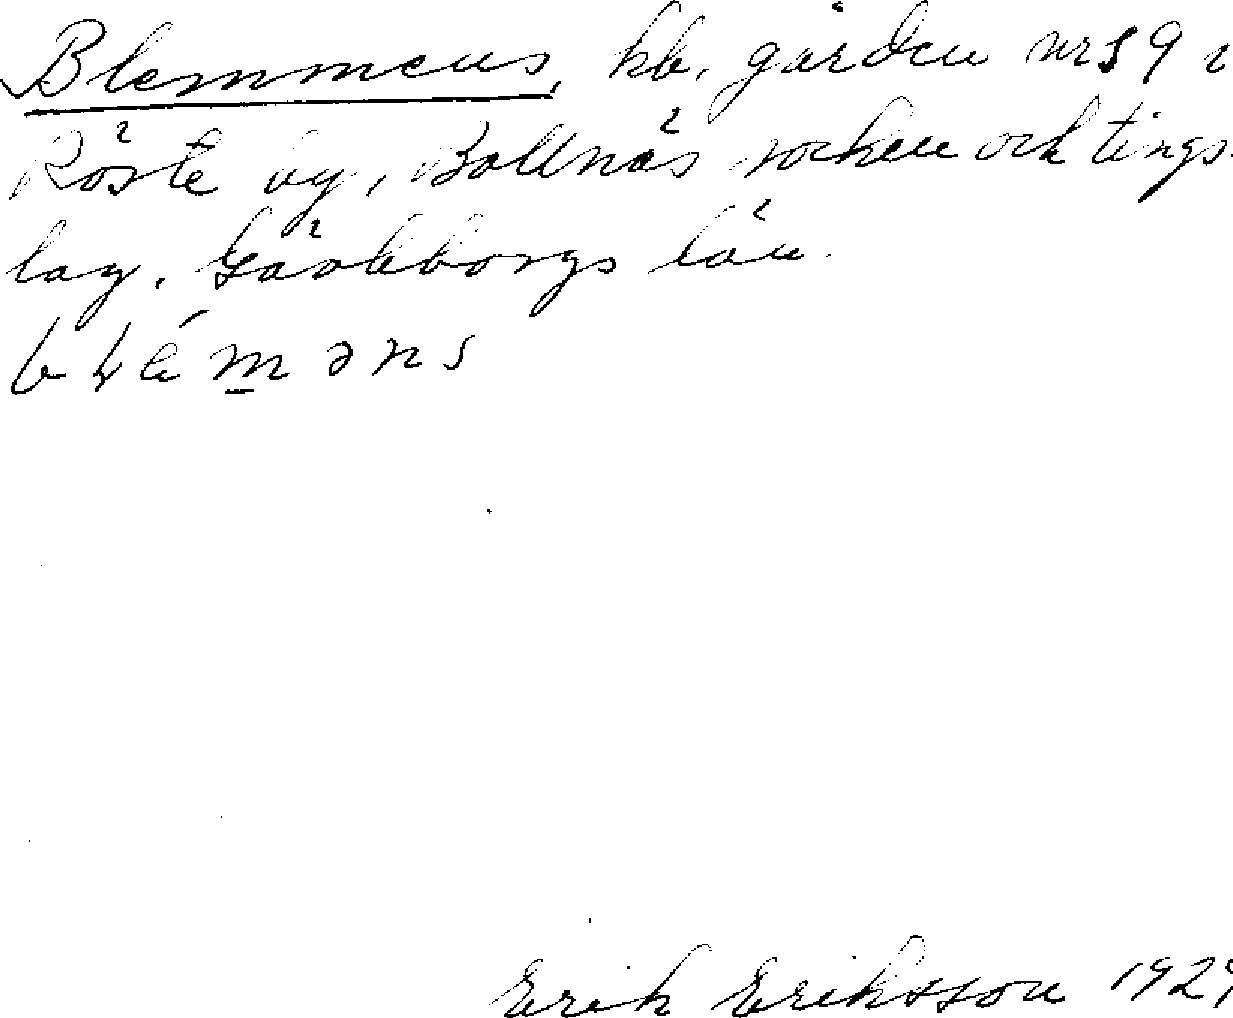 Blemmens, kb. gården nr 59 i
Röste by, Bollnäs socken och tings-
lag. Gävleborgs län.
Erik Eriksson 1929